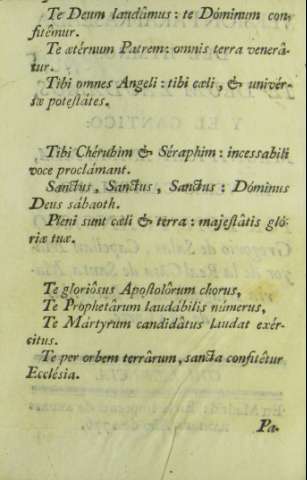 Te Deum laudâmus: te Dóminum con-
fitêmur.
Te ætérnum Patrem: omnis terra venerâ-
tur.
Tibi omnes Angeli: tibi cæli, & univér-
sæ potestátes.
Tibi Chérubim & Séraphim: incessabili
voce proclámant.
Sanctus, Sanctus, Sanctus: Dóminus
Deus sábaoth.
Pleni sunt cæli & terra: majestâtis gló-
riæ tuæ.
Te gloriôsus Apostolôrum chorus,
Te Prophetârum laudábilis númerus,
Te Mártyrum candidâtus laudat exér-
citus.
Te per orbem terrârum, sancta confitêtur
Ecclésia.
Pa-